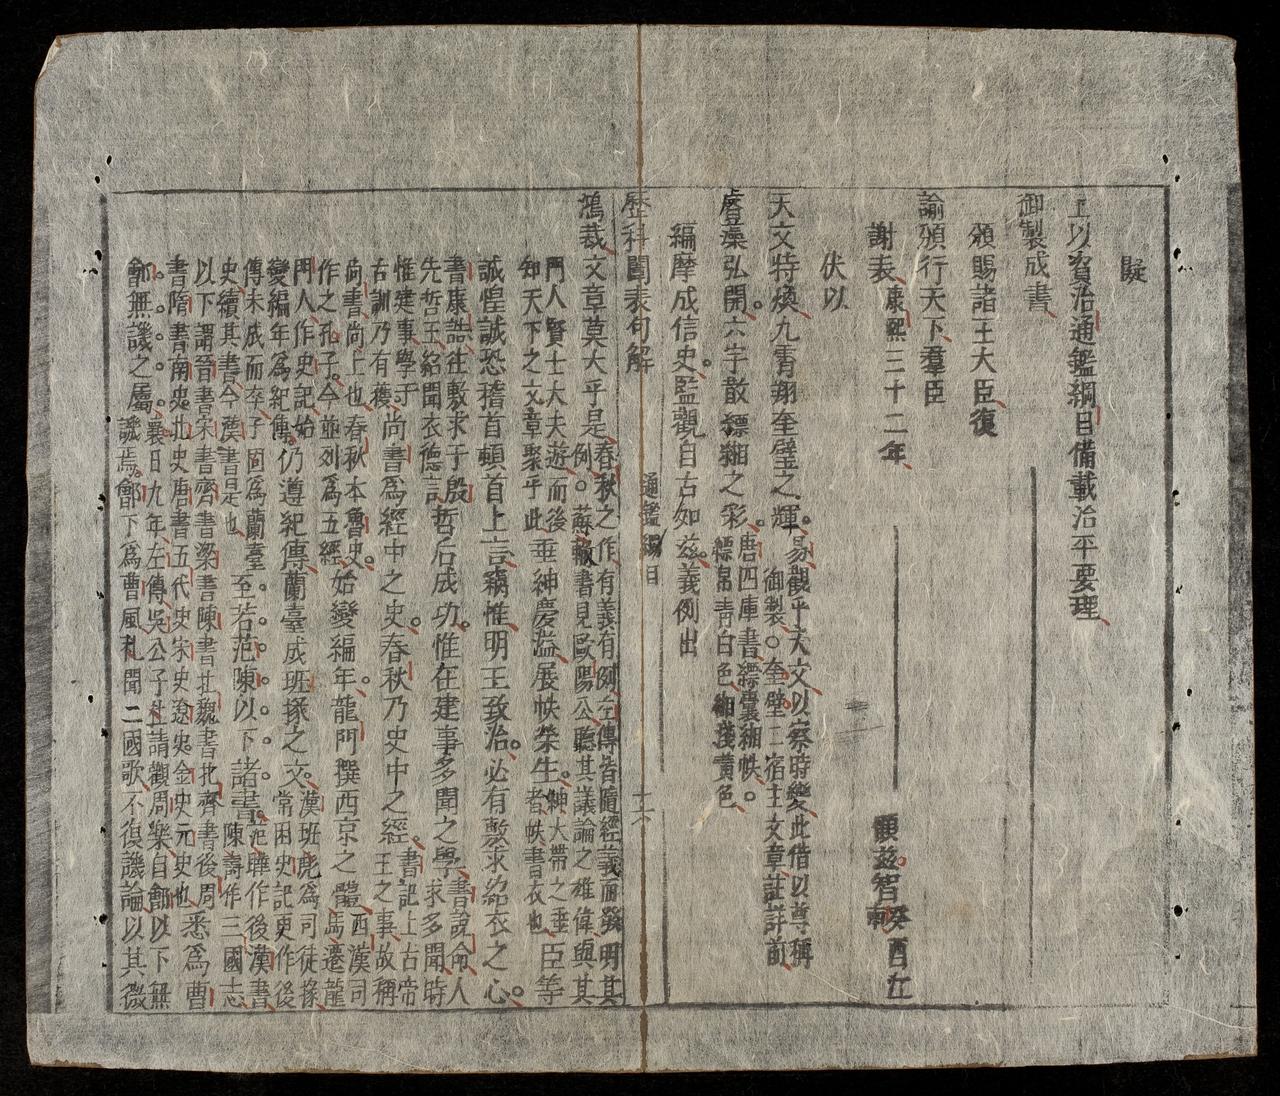 擬
上以資治通鑑綱目備載治平要理
御製成書
頒賜諸王大臣復
諭頒行天下羣臣
謝表 康熙三十二年 癸酉江
南
顧茲智
伏以
天文特煥九霄翔奎璧之輝。
易觀乎天文以察時變此借以尊稱
御製。○奎壁二宿主文章註詳前
睿藻弘開。六宇散縹緗之彩。
唐四庫書縹囊緗帙。
縹帛靑白色緗淺黃色
編摩成信史。監觀自古如茲。義例出
歷科闈表句解 通鑑綱目 十六
鴻裁。文章莫大乎是。
春秋之作有義有例左傳皆隨經義而發明其
例。○蘇轍書見歐陽公聽其議論之雄偉與其
門人賢士大夫遊而後
知天下之文章聚乎此
垂紳慶溢展帙榮生。
紳大帶之垂
者帙書衣也
臣等
誠惶誠恐稽首頓首上言竊惟明王致治。必有敷求紹衣之心。
書康誥往敷求于殷
先哲王紹聞衣德言
哲后成功。惟在建事多聞之學。
書說命人
求多聞時
惟建事學于
古訓乃有獲
尚書爲經中之史。春秋乃史中之經。
書記上古帝
王之事故稱
尚書尚上也春秋本魯史。
作之孔子。今並列爲五經
始變編年。龍門撰西京之體。
西漢司
馬遷龍
門人作史記始
變編年爲紀傳。
仍遵紀傳蘭臺成班掾之文。
漢班彪爲司徒掾
常因史記更作後
傳未成而卒子固爲蘭臺。
史續其書今漢書是也
至若范陳以下諸書。
范曄作後漢書
陳壽作三國志
以下謂晉書宋書齊書梁書陳書北魏書北齊書後周
書隋書南史北史唐書五代史宋史遼史金史元史也
悉爲曹
鄶無譏之屬。
襄廿九年左傳吳公子札請觀周樂自鄶以下無
譏焉。鄶下爲曹風札聞二國歌不復譏論以其微